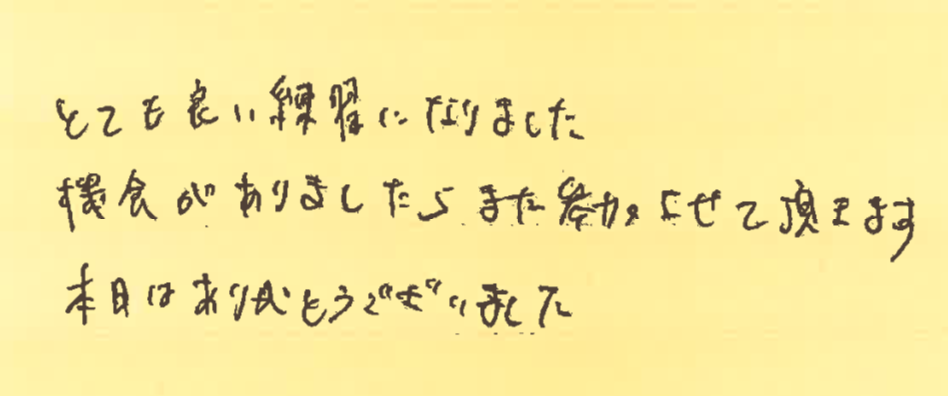 とても良い練習になりました
機会がありましたらまた参加させて頂きます
本日はありがとうございました